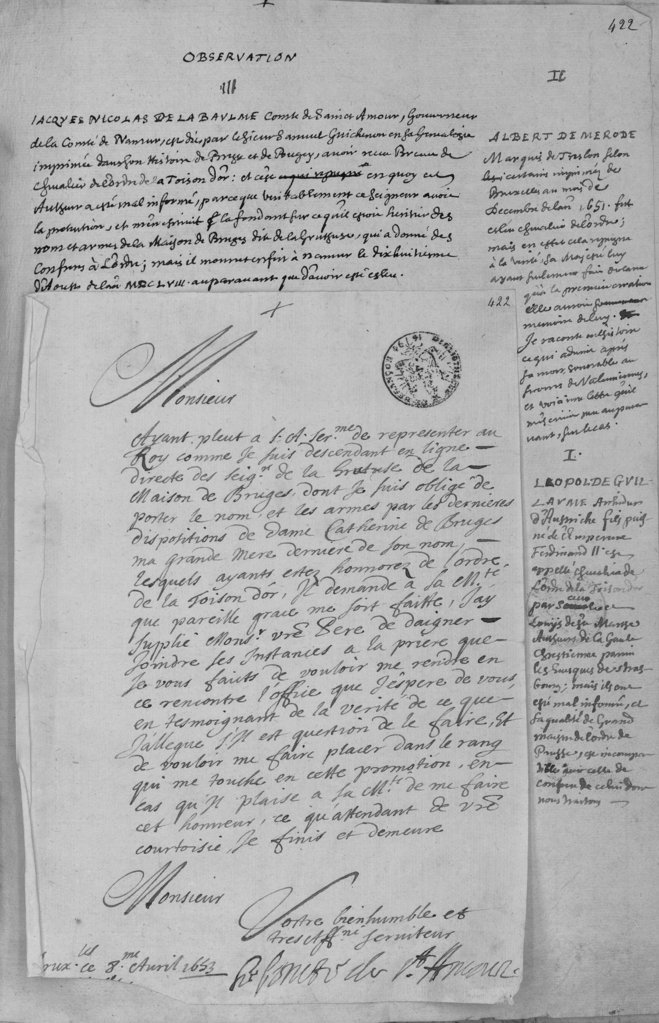 422
OBSERVATION
III
IACQVES NICOLAS DE LA BAVLME Comte de Sainct Amour, Gouverneur
de la Comté de Namur, est dit, par le sieur Samuel Guichenon en sa Genealogie
imprimée dans son Histoire de Bresse et de Bugey, avoir receu Brevet de
Chevalier de l'ordre de la Toison d'or: et c'est en quoy cet
Autheur a esté mal informé, parceque veritablement ce seigneur avoit
la pretention, et m'en escrivit se fondant sur ce qu'il estoit heritier des
nom et armes de la Maison de Bruges dit de la Gruthuse, qui a donné des
Confreres à l'ordre; mais il mourut enfin à Namur le dixhuitieme
d'Aoust de l'an MDCLVIII. auparavant que d'avoir esté esleu.
II
ALBERT DE MERODE
Marquis de Treslon selon
les certains imprimez de
Bruxelles au mois de
Decembre de l'an 1651. fut
esleu chevalier de l'ordre;
mais en effet cela repugne
à la verité, sa Ma.té
ayant seulement fait declarer
qu'à la premiere creation
elle auroit
memoire de luy.
Je raconte en l'histoire
ce qui advint apres
sa mort, honorable au
de Valenciennes,
et voicy une lettre qu'il
m'escrivit peu aupara-
vant, sur le cas.
I.
LEOPOLDE GVIL-
LAVME Archiduc
d'Austriche fils puis-
né de l'Empereur
Ferdinand II est
appellé chevalier de
l'ordre de la Toison d'or
par
Louys de Ste Marthe
Autheurs de la Gaule
Chrestienne parmi
les Evesques de Stras-
bourg; mais ils ont
esté mal informé, et
sa qualité de Grand
maistre de l'ordre de
Prusse, est incompa-
tible avec celle de
confrere de celui dont
nous traitons
422
Monsieur
Ayant pleut a S. A. Ser.me de representer au
Roy comme Je suis descendant en ligne
directe des seig.rs de la Grutuse de la
Maison de Bruges, dont Je suis obligé de
porter le nom et les armes par les dernieres
dispositions de dame Catherine de Bruges
ma grande Mere derniere de son nom,
lesquels ayants estez honnorez de l'ordre
de la Toison d'or, Je demande à sa M.té
que pareille grace me soit faitte, J'ay
supplié Mons.r vre Pere de daigner
Joindre ses Instances a la priere que
Je vous faits de vouloir me rendre en
ce rencontre l'office que J'espere de vous,
en tesmoignant de la verité de ce que
J'allegue s'Il est question de le faire, Et
de vouloir me faire placer dans le rang
qui me touche en cette promotion, en
cas qu'Il plaise a sa M.té de me faire
cet honneur, ce qu'attendant de vre
courtoisie Je finis et demeure
Monsieur
Vostre bien humble et
tresaff.né serviteur
Brux.les ce 8.me Avril 1653
Le Conte de St Amour.